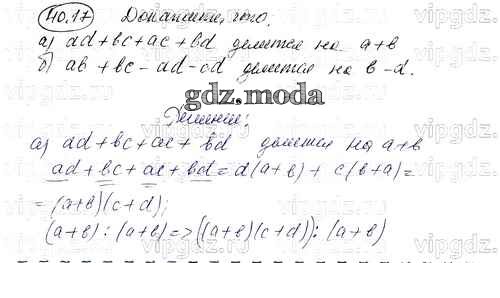 40.17 Докажите, что.
а) ad+bc+ac+bd делится на a+b
б) ab+bc-ad-cd делится на b-d.
gdz.moda
Решение:
а) ad+bc+ac+bd делится на a+b
ad+bc+ac+bd=d(a+b)+c(b+a)=
=(a+b)(c+d);
(a+b):(a+b)=>((a+b)(c+d)):(a+b)